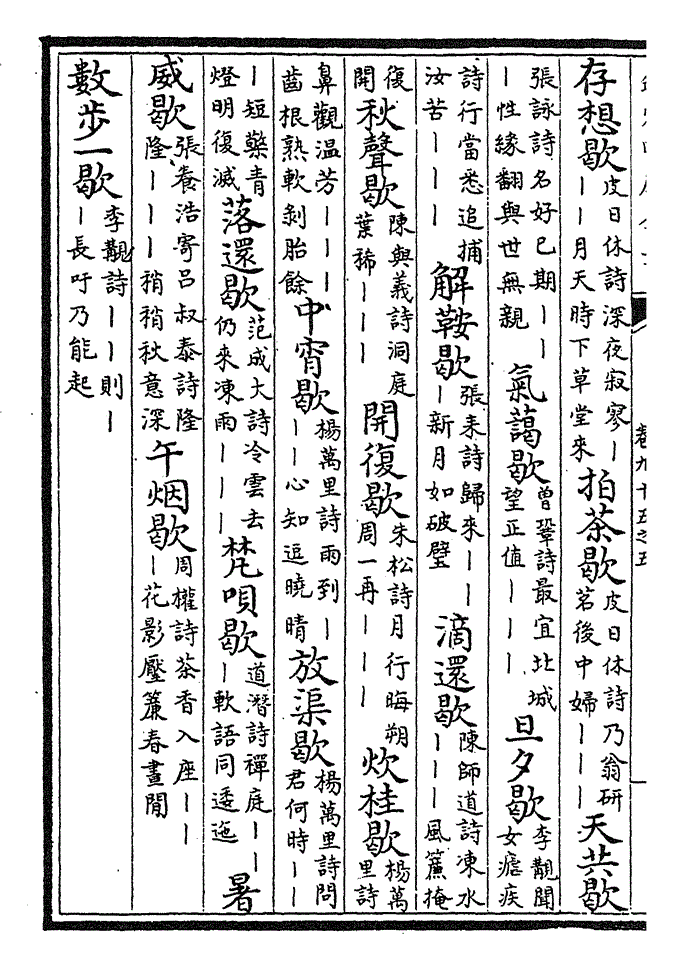 卷九十五之五
存想歇皮日休詩深夜寂寥丨丨丨月天時下草堂來拍茶歇皮日休詩乃翁研茗後中婦丨丨丨天共歇
張詠詩名好已期丨丨丨性緣翻與世無親氣藹歇曾鞏詩最宜北城望正值丨丨丨旦夕歇李覯聞女瘧疾
詩行當悉追捕汝苦丨丨丨解鞍歇張耒詩歸來丨丨丨新月如破璧滴還歇陳師道詩凍水丨丨丨風簾掩
復開秋聲歇陳與義詩洞庭葉稀丨丨丨開復歇朱松詩月行晦朔周一再丨丨丨炊桂歇楊萬里詩
鼻觀温芳丨丨丨齒根熟軟剝胎餘中宵歇楊萬里詩雨到丨丨丨心知逗曉晴放渠歇楊萬里詩問君何時丨丨
丨短檠青燈明復滅落還歇范成大詩冷雲去仍來凍雨丨丨丨梵唄歇道潛詩禪庭丨丨丨軟語同逶迤暑
威歇張養浩寄呂叔泰詩隆隆丨丨丨稍稍秋意深午烟歇周權詩茶香入座丨丨丨花影壓簾春晝閒
數步一歇李覯詩丨丨則丨丨長吁乃能起